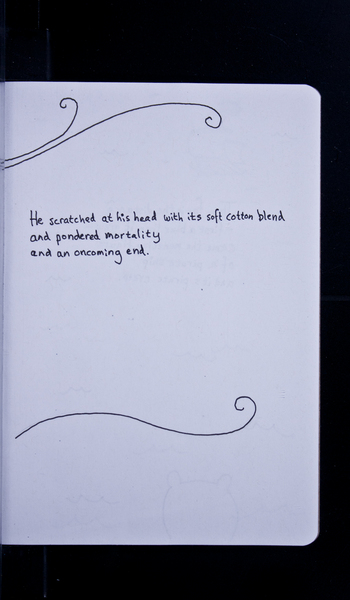 He scratched at his head with its soft cotton blend
and pondered mortality
and an oncoming end.